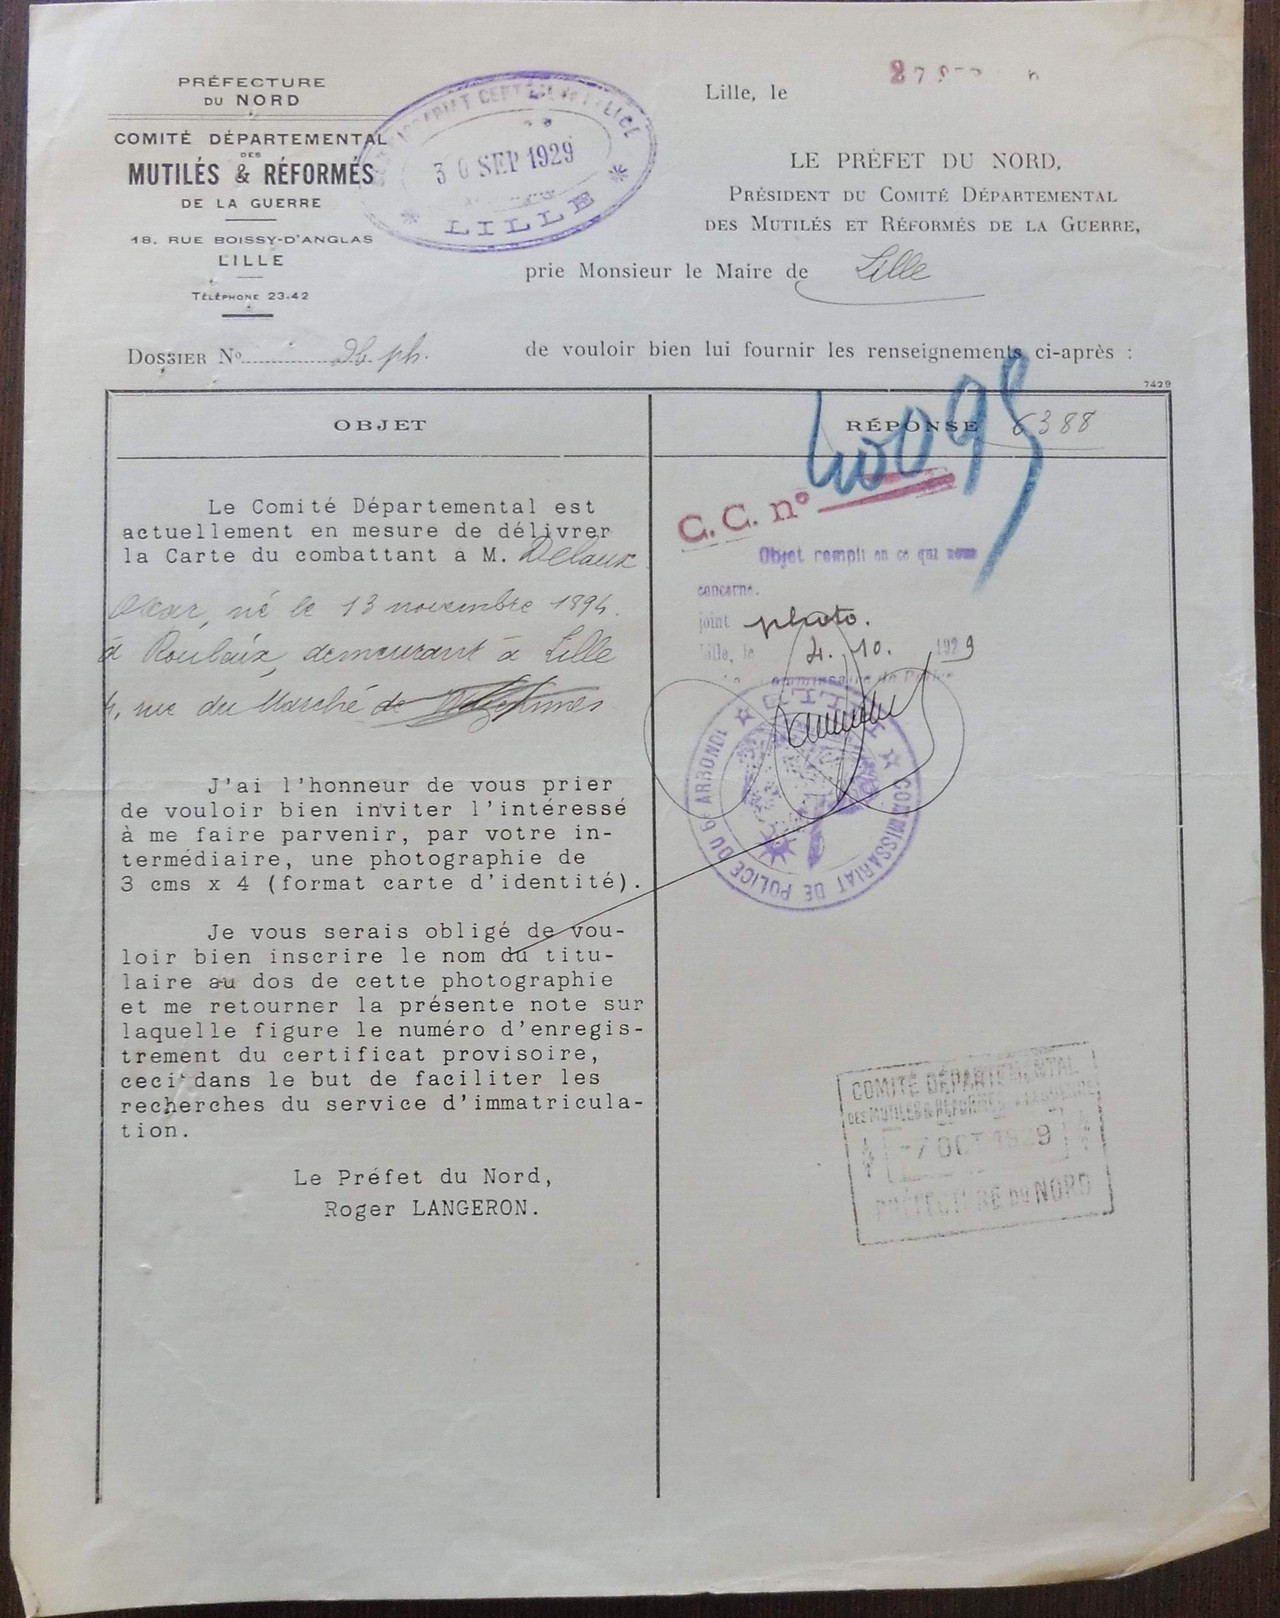 PRÉFECTURE
DU NORD
COMITÉ DÉPARTEMENTAL
DES
MUTILÉS & RÉFORMÉS
DE LA GUERRE
18, RUE BOISSY-D'ANGLAS
LILLE
TÉLÉPHONE 23-42
DOSSIER No
COMMISSARIAT CENTRAL DE POLICE
30 SEP 1929
LILLE
Lille, le
27 SEP
LE PRÉFET DU NORD,
PRÉSIDENT DU COMITÉ DÉPARTEMENTAL
DES MUTILÉS ET RÉFORMÉS DE LA GUERRE,
prie Monsieur le Maire de Lille
de vouloir bien lui fournir les renseignements ci-après :
7429
OBJET
Le Comité Départemental est
actuellement en mesure de délivrer
la Carte du combattant à M. Delaux
Oscar, né le 13 novembre 1894
à Roubaix, demeurant à Lille
4, rue du Marché de
J'ai l'honneur de vous prier
de vouloir bien inviter l'intéressé
à me faire parvenir, par votre in-
termédiaire, une photographie de
3 cms x 4 (format carte d'identité).
Je vous serais obligé de vou-
loir bien inscrire le nom du titu-
laire au dos de cette photographie
et me retourner la présente note sur
laquelle figure le numéro d'enregis-
trement du certificat provisoire,
ceci dans le but de faciliter les
recherches du service d'immatricula-
tion.
Le Préfet du Nord,
Roger LANGERON.
RÉPONSE 6388
40095
C. C. n°
Objet rempli en ce qui nous
concerne.
joint photo.
Lille, le 4. 10. 1929
Le Commissaire de Police
COMMISSARIAT DE POLICE DU 6e ARRONDt
LILLE
COMITÉ DÉPARTEMENTAL
DES MUTILÉS & RÉFORMÉS DE LA GUERRE
-7 OCT 1929
PRÉFECTURE DU NORD